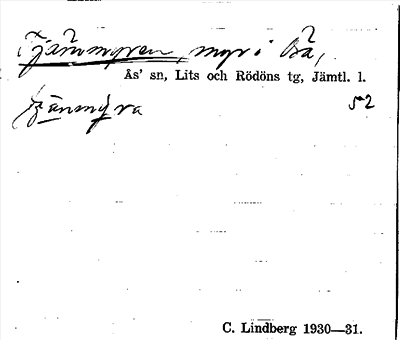 Tjärnmyren, myr i Ås,
Ås' sn, Lits och Rödöns tg, Jämtl. l.
52
C. Lindberg 1930—31.